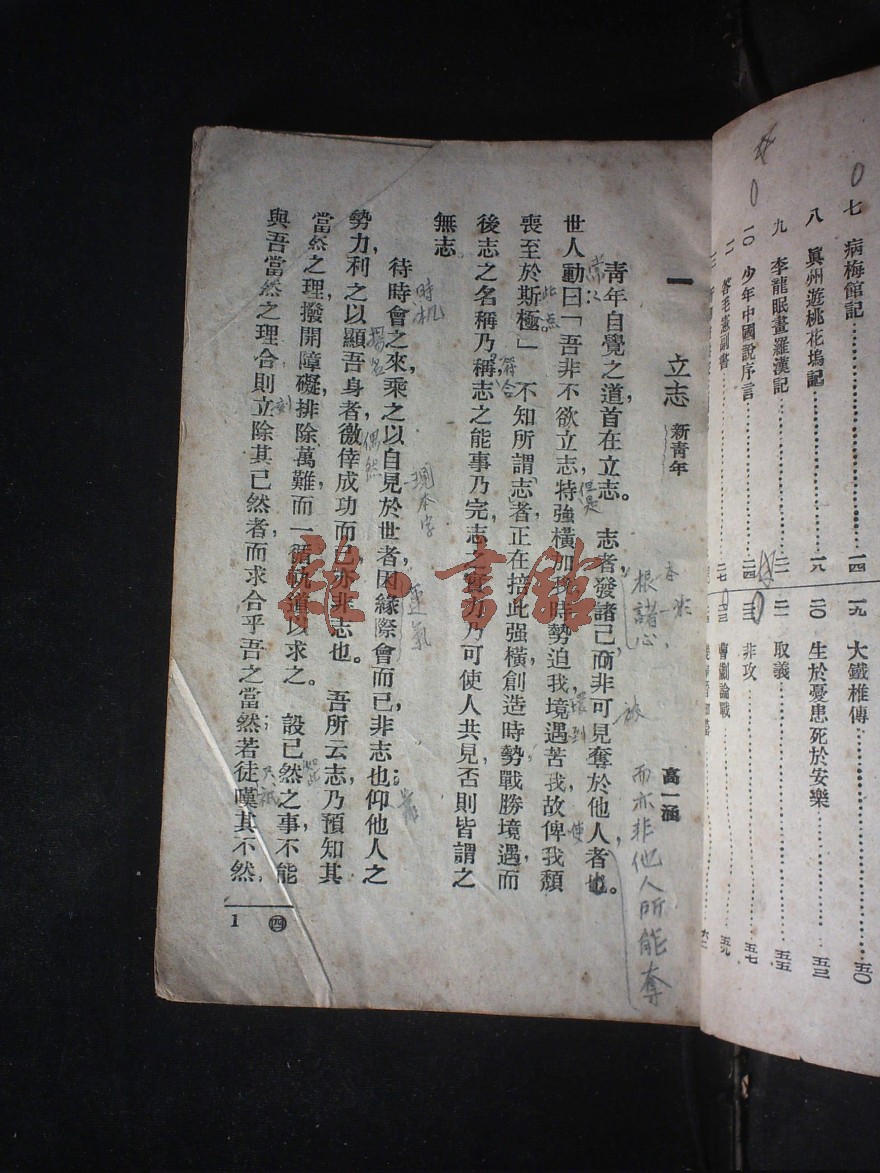 七 病梅館記………一四
八 眞州遊桃花塢記………一八
九 李龍眠畫羅漢記………二一
一〇 少年中國說序言………二四
一一 答毛憲副書………二七
一九 大鐵椎傳………五〇
二〇 生於憂患死於安樂………五三
二一 取義………五五
非攻………五七
曹劌論戰………五九
一 立志 新青年 高一涵
青年自覺之道，首在立志。志者發諸己而非可見奪於他人者也。
世人動曰「吾非不欲立志，特強橫加我，時勢迫我，境遇苦我，故俾我頹
喪至於斯極」不知所謂志者，正在掊此强橫，創造時勢，戰勝境遇，而
後志之名稱乃稱，志之能事乃完，志之實力乃可使人共見，否則皆謂之
無志。
待時會之來，乘之以自見於世者，因緣際會而已，非志也；仰他人之
勢力，利之以顯吾身者，徼倖成功而已，亦非志也。吾所云志，乃預知其
當然之理，撥開障礙，排除萬難，而一循軌道以求之。設已然之事，不能
與吾當然之理合，則立除其已然者，而求合乎吾之當然；若徒嘆其不然，
四
1
常又
但是
根諸心
本來
被
而亦非他人所能奪
此点
符合
還到
使
时机
揚名
偶然
現本字
運氣
靠
立刻
只、祇
雅心書館